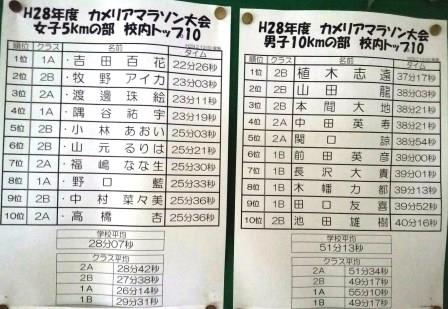 H28年度 カメリアマラソン大会
女子5kmの部 校内トップ10
順位 クラス 名前 タイム
1位 1A ・吉田百花 22分26秒
2位 2B ・牧野アイカ 23分03秒
3位 2A ・渡邊珠絵 23分11秒
4位 1A ・隅谷祐宇 23分19秒
5位 2B ・小林あおい 25分03秒
6位 2B ・山元るりは 25分21秒
7位 2A ・福嶋なな生 25分30秒
8位 1A ・野口藍 25分33秒
9位 2B ・中村菜々美 25分36秒
10位 2A ・高橋杏 25分36秒
学校平均
28分07秒
クラス平均
2A 28分42秒
2B 27分38秒
1A 26分14秒
1B 29分31秒
H28年度 カメリアマラソン大会
男子10kmの部 校内トップ10
順位 クラス 名前 タイム
1位 2B 植木志遠 37分17秒
2位 2B 山田龍 38分03秒
3位 2B 本間大地 38分21秒
4位 2A 中田英寿 38分21秒
5位 2A 関口諒 38分54秒
6位 1B 前田英彦 39分00秒
7位 1B 長沢大貴 39分01秒
8位 1B 木幡力都 39分13秒
9位 1B 田口友喜 39分52秒
10位 2B 池田雄樹 40分16秒
学校平均
51分13秒
クラス平均
2A 51分34秒
2B 49分17秒
1A 55分10秒
1B 49分17秒